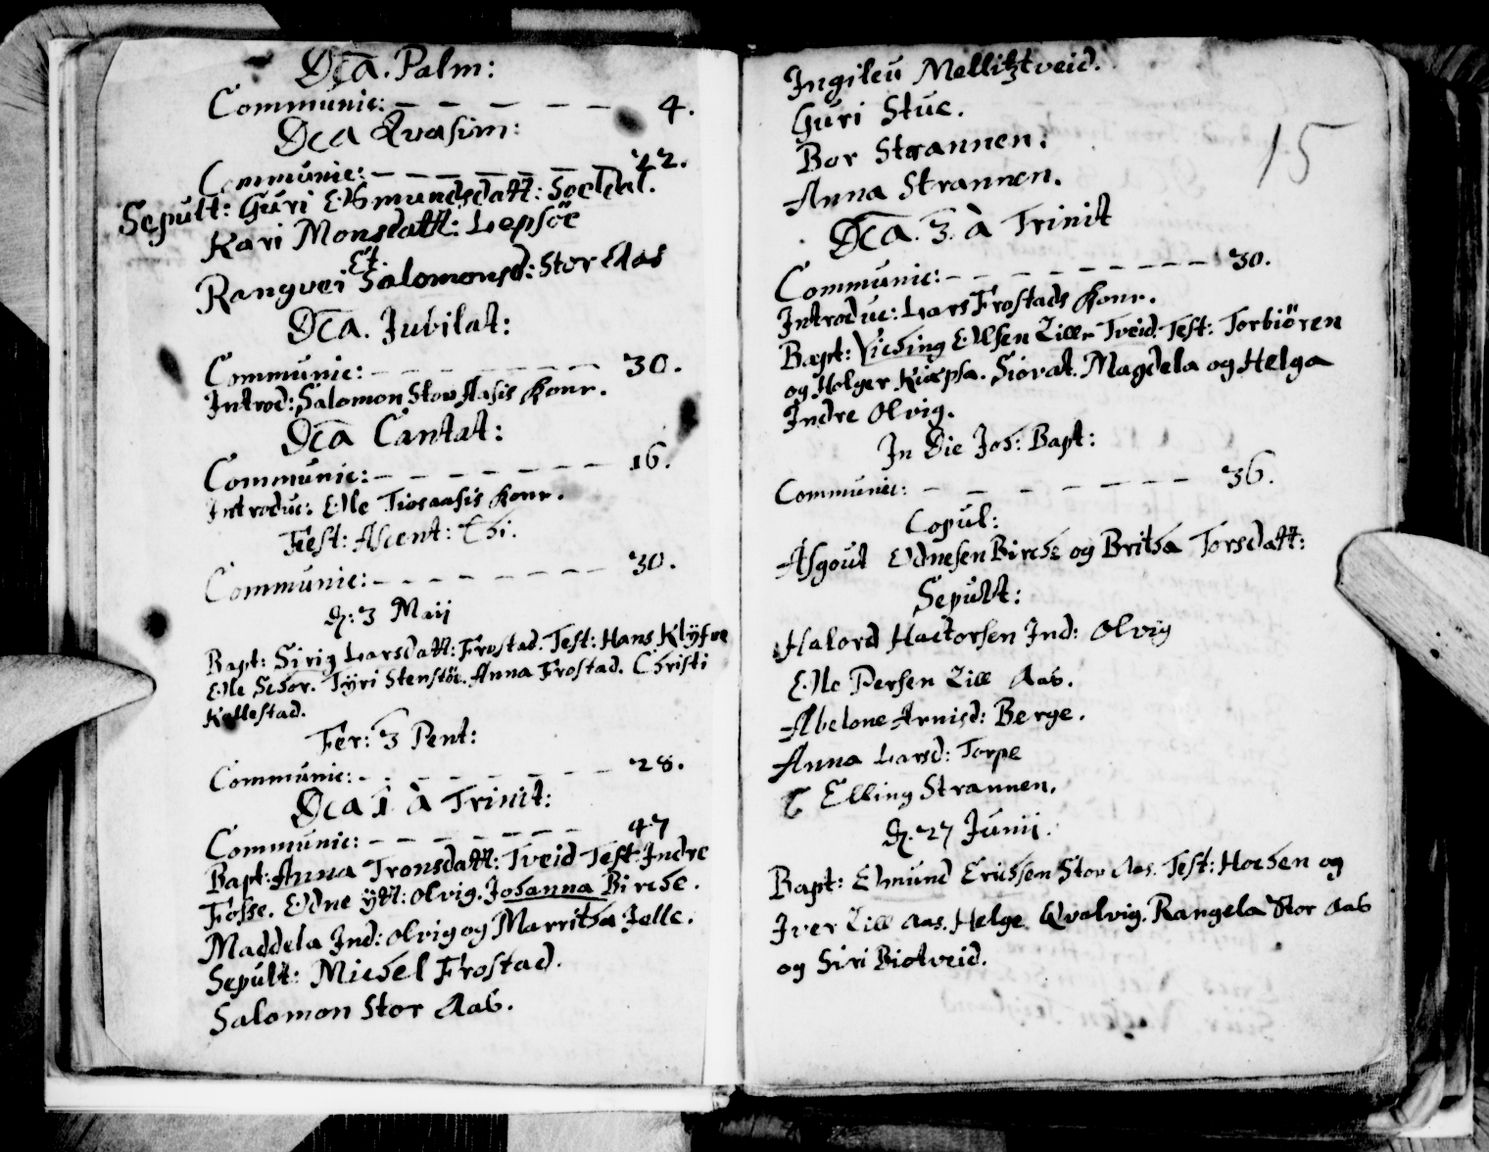 Dca. Palm:
Communic: – – – – – 4.
Dca Qvasim:
Communic: – – – – – – 22.
Sepult: Guri Asmundsdatt: Soeldal.
Kari Monsdatt: Lepsöe
Et
Rangvei Salomonsd: Stor Aas
Dca. Jubilat:
Communic: – – – – – – – 30.
Introd: Salomon Stor Aasis konr.
Dca Cantat:
Communic: – – – – – – 16.
Introduc: Ole Tioraasis konr.
Fest: Ascent: Chi.
Communic: – – – – – – – 30.
D: 3 Maij
Bapt: Sirig Larsdatt: Frostad. Test: Hans Klÿfve
Ole Schor. Tÿri Stenstöe. Anna Frostad. Christi
Kollestad.
Fer: 3 Pent:
Communic: – – – – – – – 28.
Dca 1 à Trinit:
Communic: – – – – – – 47
Bapt: Anna Tronsdatt: Tveid Test: Indre
Fosse. Odne ÿtt: Olvig. Johanna Birche.
Maddela Ind: Olvig og Marritha Jelle.
Sepult: Michel Frostad.
Salomon Stor Aas.
Ingileu Mellitztveid.
Guri Stue.
Bor Strannen.
Anna Strannen.
15
Dca. 3. à Trinit
Communic: – – – – – – – – – 30.
Introduc: Lars Frostads konr.
Bapt: Viching Olsen Lille Tveid. Test: Torbiören
og Holger Kiæpsa. Siovat. Magdela og Helga
Indre Olvig.
In Die Joh: Bapt:
Communic: – – – – – – 36.
Copul:
Asgout Odnesen Birche og Britha Torsdatt:
Sepult:
Halord Hactorsen Ind: Olvig
Ole Persen Lill Aas.
Abelone Arnisd: Berge.
Anna Larsd: Torpe
Elling Strannen.
D. 27 Junij.
Bapt: Omund Erichsen Stor Aas. Test: Hochen og
Iver Lill Aas. Helge Qvalvig. Rangela Stor Aas
og Siri Biotveid.